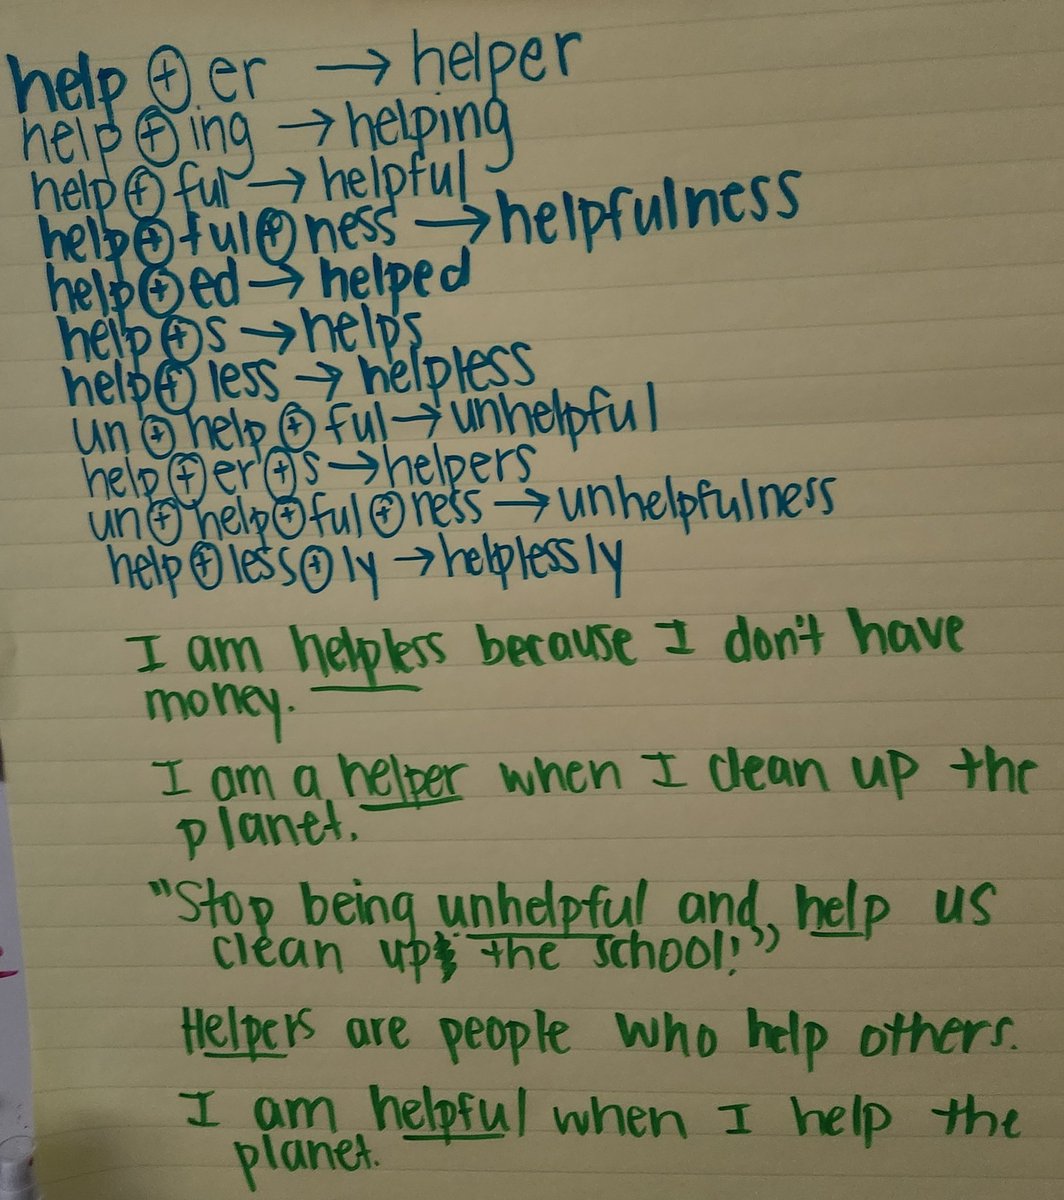 help + er → helper
help + ing → helping
help + ful → helpful
help + ful + ness → helpfulness
help + ed → helped
help + s → helps
help + less → helpless
un + help + ful → unhelpful
help + er + s → helpers
un + help + ful + ness → unhelpfulness
help + less + ly → helplessly
I am helpless because I don't have
money.
I am a helper when I clean up the
planet.
"Stop being unhelpful and help us
clean up the school!"
Helpers are people who help others.
I am helpful when I help the
planet.